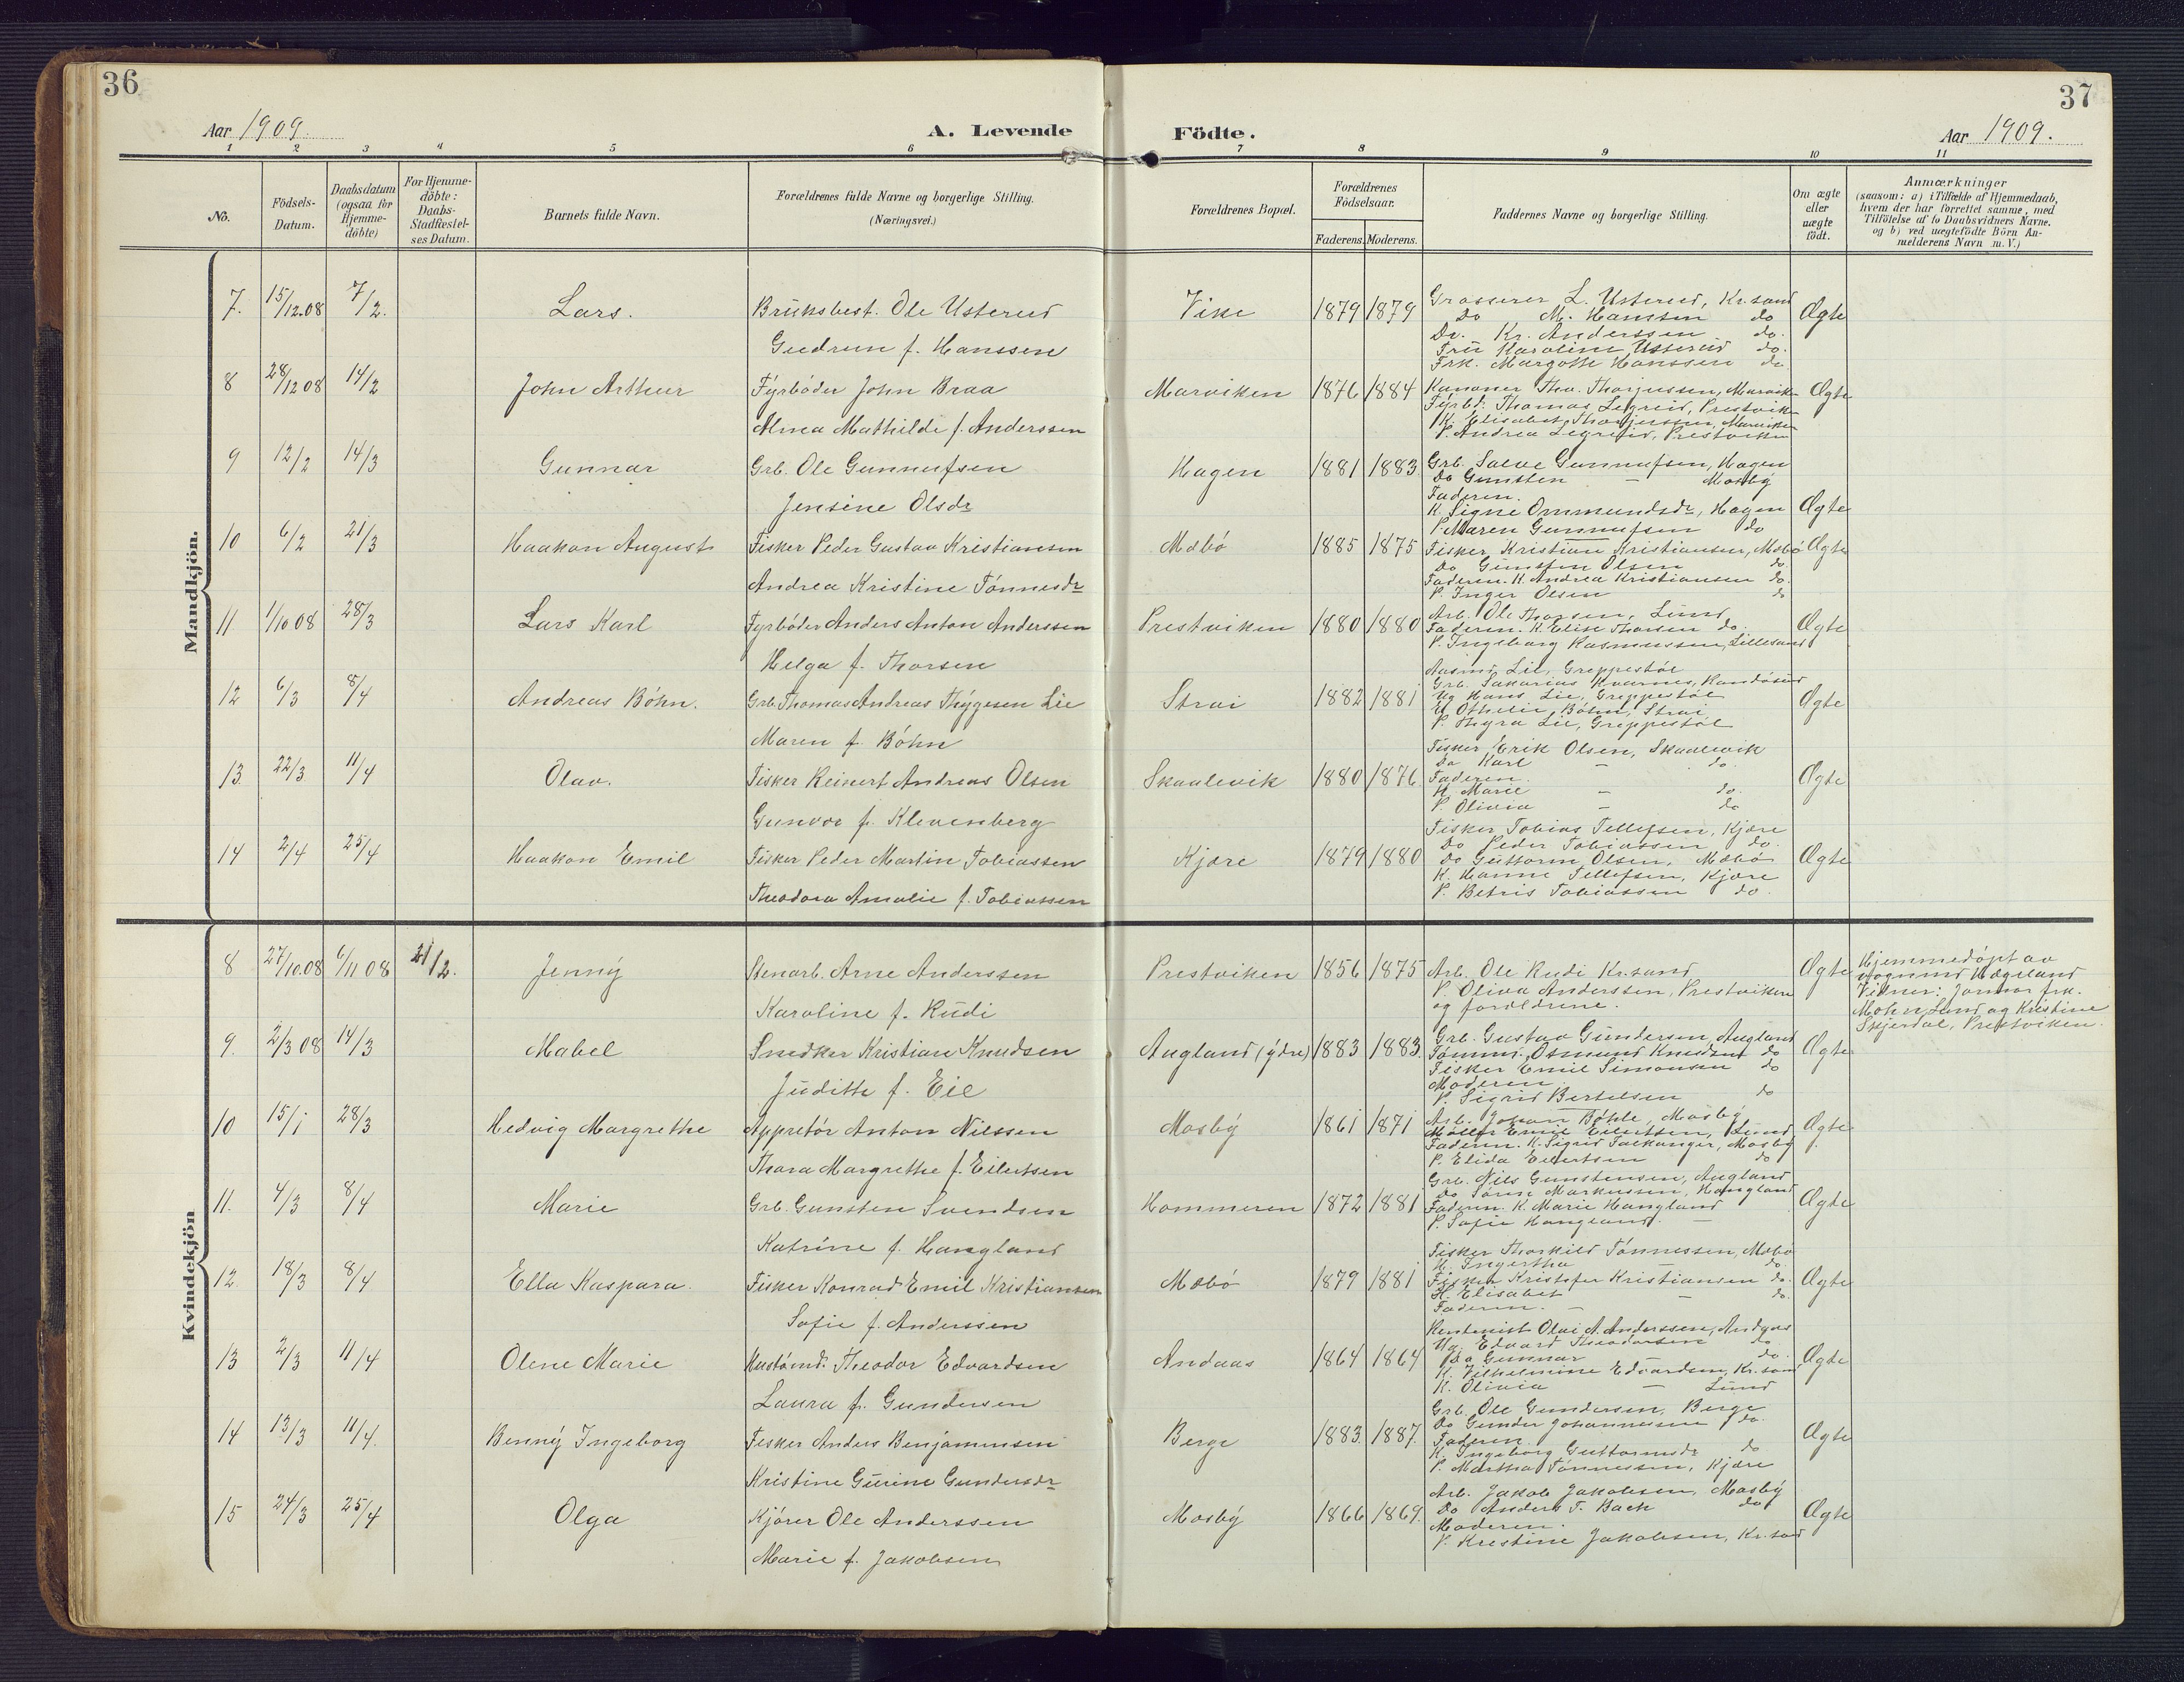 36
37
Aar 1909.
A. Levende
Födte.
Aar 1909.
1 2 3 4 5 6 7 8 9 10 11
No.
Födsels-
Datum.
Daabsdatum
(ogsaa for
Hjemme-
döbte)
For Hjemme-
döbte:
Daabs-
Stadfæstel-
ses Datum.
Barnets fulde Navn.
Forældrenes fulde Navne og borgerlige Stilling.
(Næringsvei.)
Forældrenes Bopæl.
Forældrenes
Födselsaar.
Faderens. Moderens.
Faddernes Navne og borgerlige Stilling.
Om ægte
eller
uægte
födt.
Anmærkninger
(saasom: a) i Tilfælde af Hjemmedaab,
hvem der har forrettet samme, med
Tilföielse af to Daabsvidners Navne.
og b) ved uægtefödte Börn An-
melderens Navn m. V.)
Mandkjön.
7. 15/12.08 7/2. Lars. Bruksbest. Ole Usterud
Gudrun f. Hanssen
Vike 1879 1879
Grosserer L. Usterud, Kr.sand
Do M. Hanssen do
Dr. Kr. Anderssen do.
Fru Karoline Usterud do.
Frk. Margothe Hanssen do.
Ægte
8 28/12 08 14/2 John Arthur Fyrböder John Braa
Alma Mathilde f. Anderssen
Marviken 1876 1884
Kanoner Tho. Thorjussen, Marvik
Fyrb. Thomas Legreid, Prestvik
K. Elisabet Thorjussen, Marviken
P. Andrea Legreid, Prestviken
Ægte
9 12/2 14/3 Gunnar Grb. Ole Gunnufsen
Jensine Olsdr
Hagen 1881 1883
Grb. Salve Gunnufsen, Hagen
Do Gunsten — Mosby
Faderen.
K. Signe Ommundsdr, Hagen
P. Maren Gunnufsen do
Ægte
10 6/2 21/3 Haakon August Fisker Peder Gustav Kristiansen
Andrea Kristine Tönnesdr
Mæbö 1885 1875
Fisker Kristian Kristiansen, Mæbö
Do Gunsten Olsen do
Faderen. K. Andrea Kristiansen do.
P. Inger Olsen do
Ægte
11 1/10 08 28/3 Lars Karl Fyrböder Anders Anton Anderssen
Helga f. Thorsen
Prestviken 1880 1880
Arb. Ole Thorsen, Lund
Faderen. K. Elise Thorsen do.
P. Ingeborg Rasmussen, Lillesand
Ægte
12 6/3 8/4 Andreas Böhn. Grb. Thomas Andreas Thygesen Lie
Maren f. Böhn
Strai 1882 1881
Aasmd. Lie, Greppestöl
Grb. Sakarias Kvarnes, Randösund
Ug Hans Lie, Greppestöl
U. Othelie Böhn, Strai
P. Thyra Lie, Greppestöl
Ægte
13. 22/3 11/4 Olav. Fisker Reinert Andreas Olsen
Gunvor f. Klevenberg
Skaalevik 1880 1876
Fisker Erik Olsen, Skaalevik
Do Karl — do.
Faderen.
K. Marie — do.
P. Olivia — do
Ægte
14 2/4 25/4 Haakon Emil Fisker Peder Martin Tobiassen
Theodora Amalie f. Tobiassen
Kjære 1879 1880
Fisker Tobias Tellefsen, Kjære
Do Peder Tobiassen do.
do Guttorm Olsen, Mæbö
K. Hanne Tellefsen, Kjære
P. Betris Tobiassen do.
Ægte
Kvindekjön
8 27/10.08 6/11 08 21/2. Jenny Stenarb. Arne Anderssen
Karoline f. Rudi
Prestviken 1856 1875
Arb. Ole Rudi Kr.sand
P. Oliva Anderssen, Prestviken
og forældrene.
Ægte
Hjemmedöpt av
Vognmd Hægeland
Vidner: Jormor frk.
Mohn, Lund og Kristine
Skjerdal, Prestviken.
9. 2/3 08 14/3 Mabel Snedker Kristian Knudsen
Judithe f. Eie
Augland (ydre) 1883 1883.
Grb. Gustav Gundersen, Augland
Tömmr. Osmund Knudsen do
Fisker Emil Simonsen do
Moderen
P. Sigrid Bertelsen do
Ægte
10 15/1 28/3 Hedvig Margrethe Appretör Anton Nilssen
Thora Margrethe f. Eilertsen
Mosby 1861 1871
Arb. Johan Böhle, Mosby
Möller Emil Eilertsen, Lund
Faderen. K. Sigrid Falkanger, Mosby
P. Elida Eilertsen do
Ægte
11. 4/3 8/4 Marie Grb. Gunsten Svendsen
Katrine f. Haugland
Hommeren 1872 1881
Grb. Nils Gunstensen, Augland
Do Tönnes Markussen, Haugland
Faderen. K. Marie Haugland
P. Sofie Haugland. —
Ægte
12 18/3 8/4 Ella Kaspara. Fisker Konrad Emil Kristiansen
Sofie f. Anderssen
Mæbö 1879 1881
Fisker Thorkild Tönnessen, Mæbö
K. Ingertha — do.
Fisker Kristofer Kristiansen do.
K. Elisabet — do.
Faderen. —
Ægte
13 2/3 11/4 Olene Marie Hustömd. Theodor Edvardsen
Laura f. Gundersen
Andaas 1864 1864
Rentenist Olai A. Anderssen, Andaas
Ug. Edvard Theodorsen do
Do Gunnar — do.
K. Vilhelmine Edvardsen, Kr.sand
K. Olivia — Lund
Ægte
14 13/3 11/4. Benny Ingeborg Fisker Anders Benjaminsen
Kristine Gurine Gundersdr
Berge 1883. 1887.
Grb. Ole Gundersen, Berge
Do Gunder Johannessen do.
Faderen
K. Ingeborg Guttormsdr do
P. Martha Tönnessen, Kjære
Ægte
15 24/3 25/4 Olga Kjörer Ole Anderssen
Marie f. Jakobsen
Mosby 1866 1869.
Arb. Jakob Jakobsen, Mosby
Do Anders T. Bach do
Moderen.
P. Kristine Jakobsen, Kr.sand
Ægte